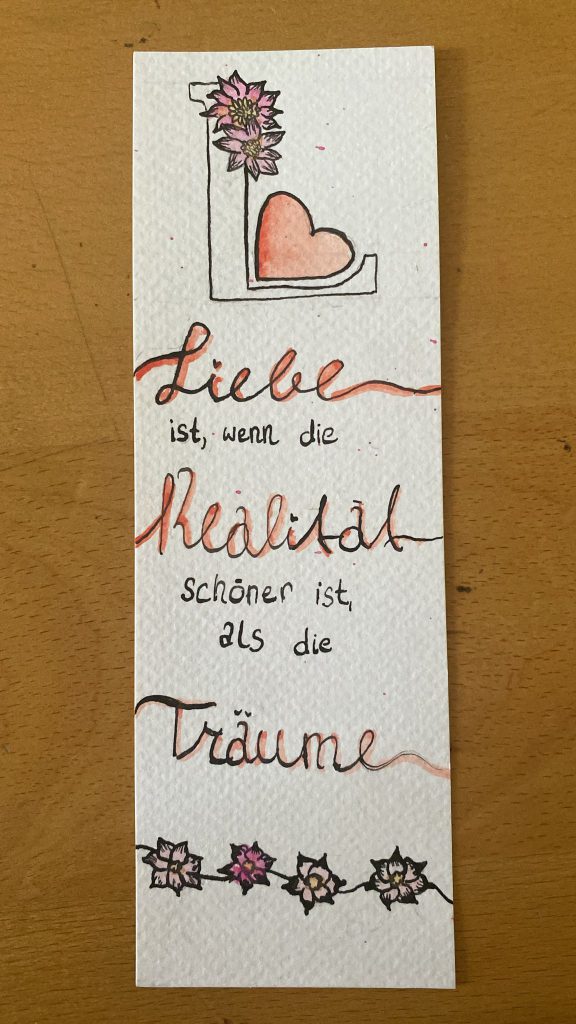 L
Liebe
ist, wenn die
Realität
schöner ist,
als die
Träume